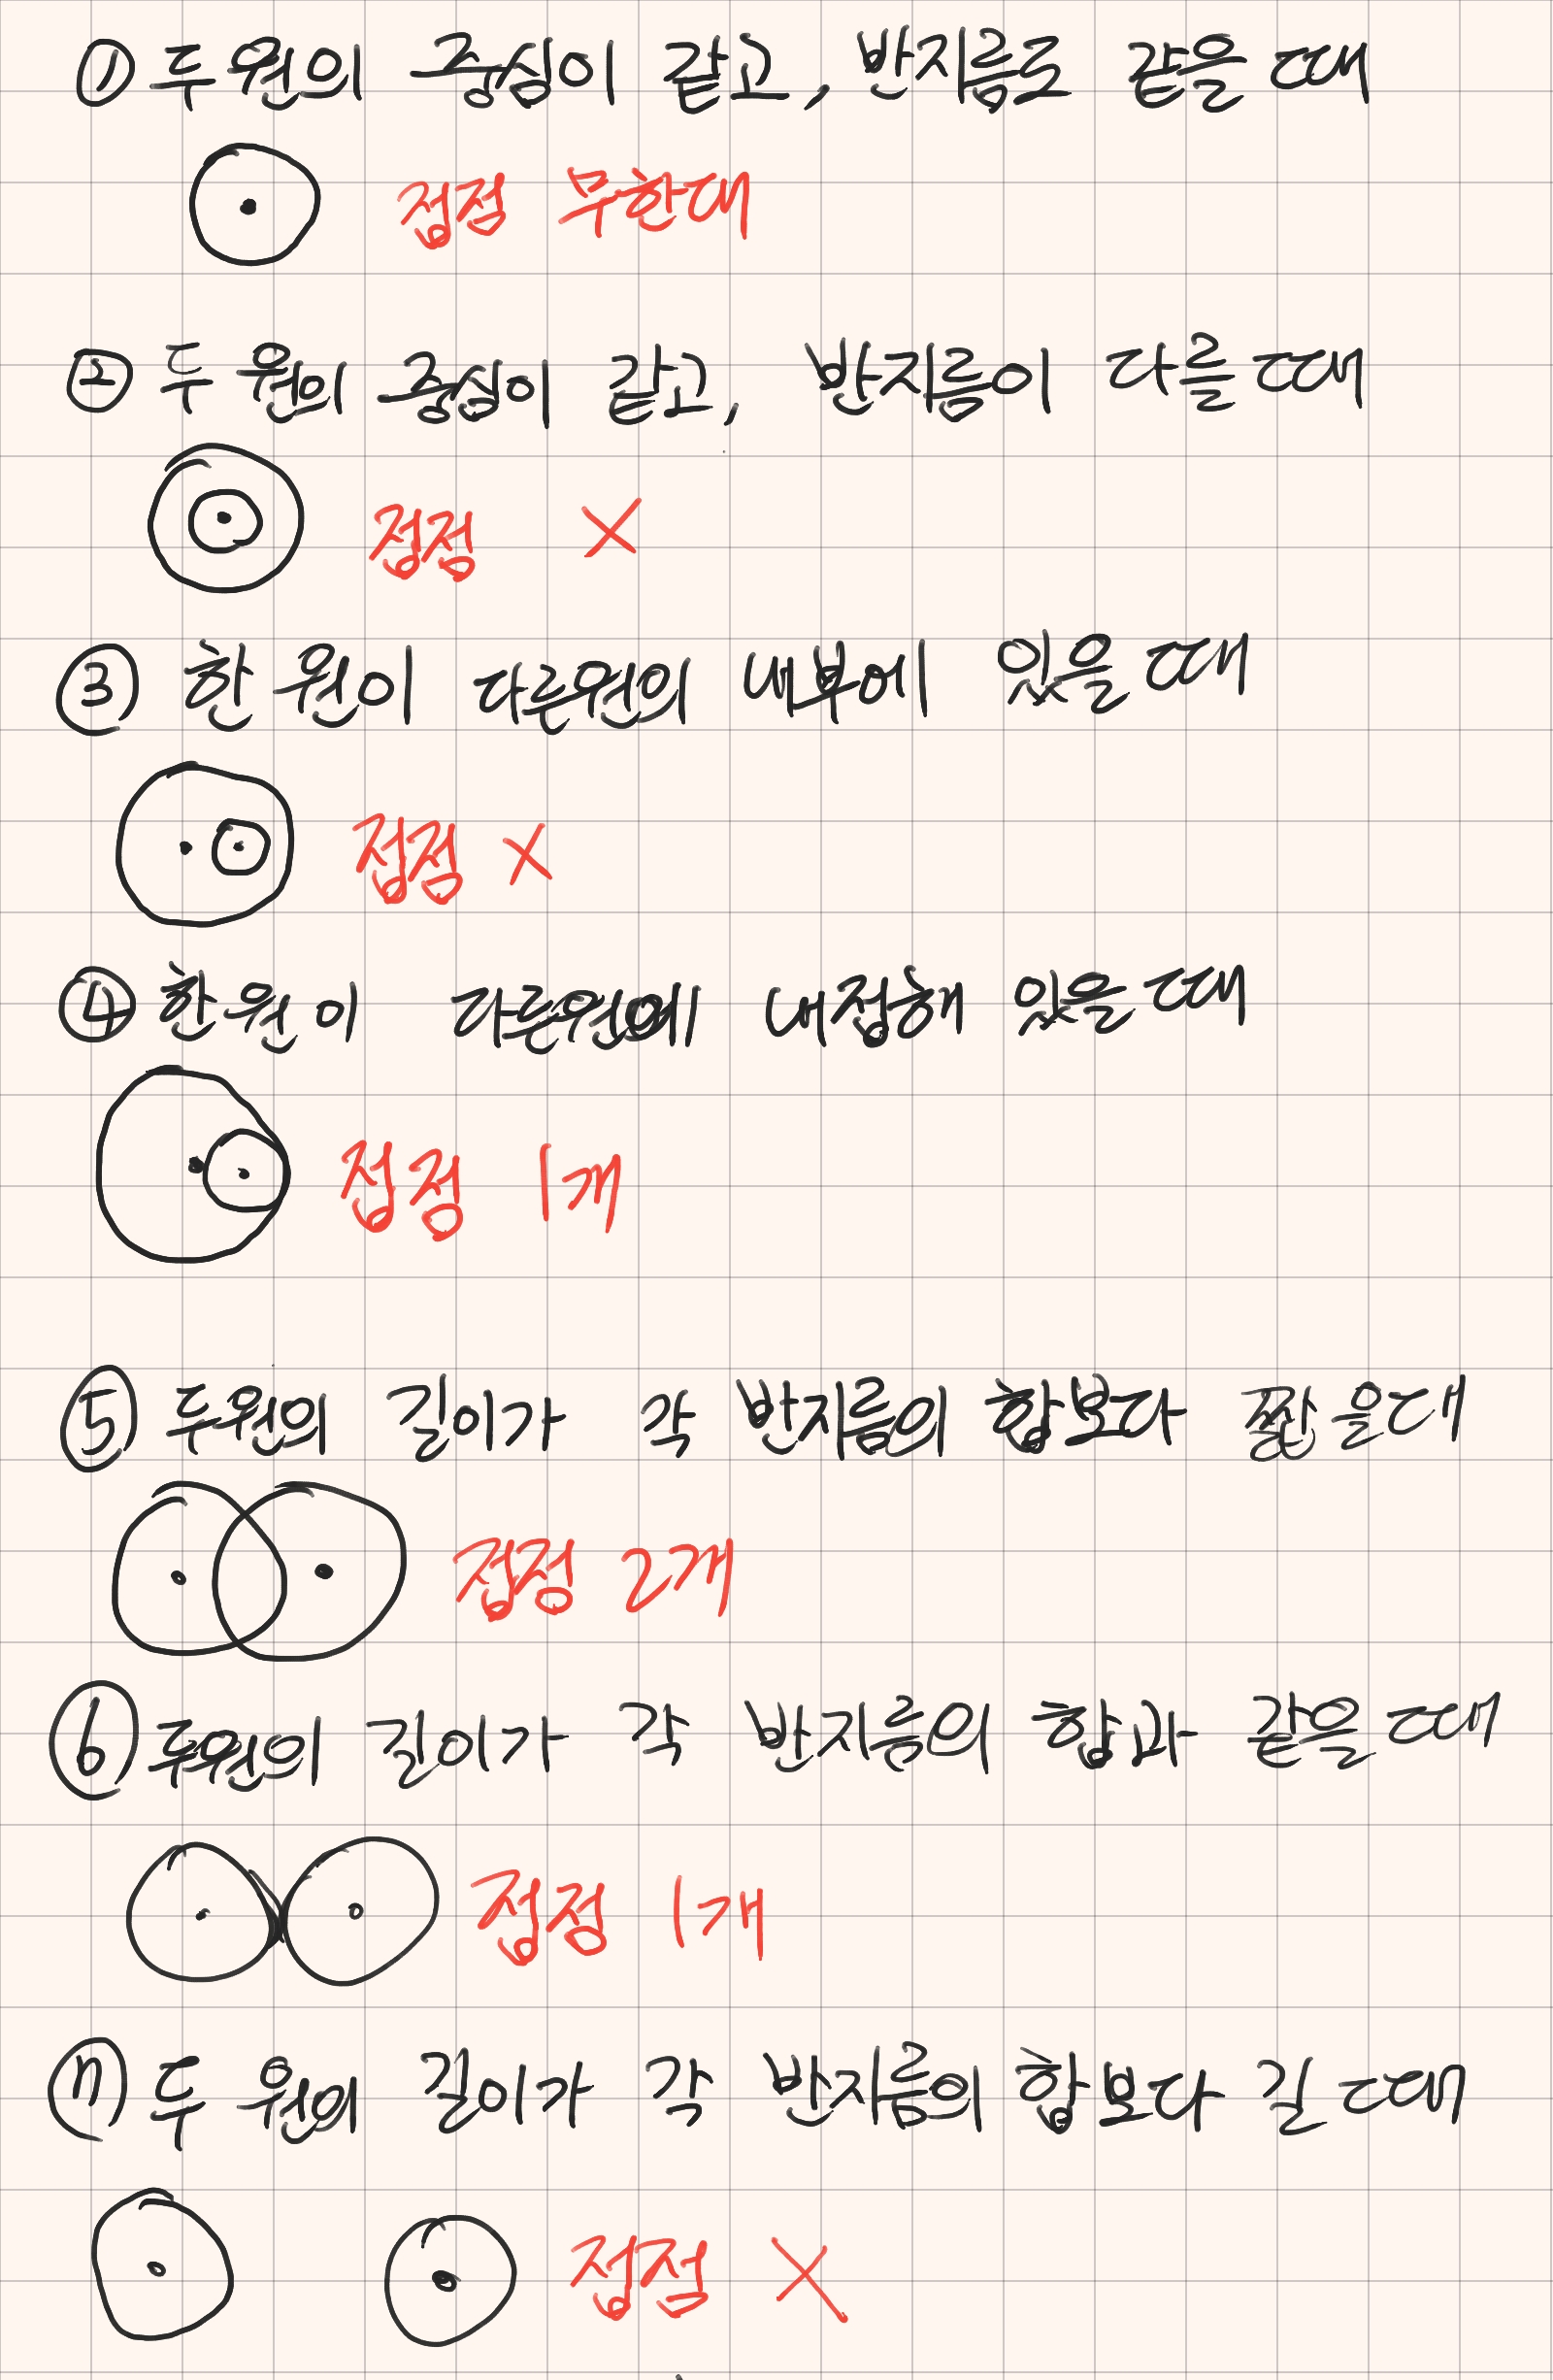 ① 두 원의 중심이 같고, 반지름도 같을 때
접점 무한대
② 두 원의 중심이 같고, 반지름이 다를 때
접점 X
③ 한 원이 다른원의 내부에 있을 때
접점 X
④ 한 원이 다른원에 내접해 있을 때
접점 1개
⑤ 두원의 길이가 각 반지름의 합보다 짧을때
접점 2개
⑥ 두원의 길이가 각 반지름의 합과 같을 때
접점 1개
⑦ 두 원의 길이가 각 반지름의 합보다 길 때
접점 X